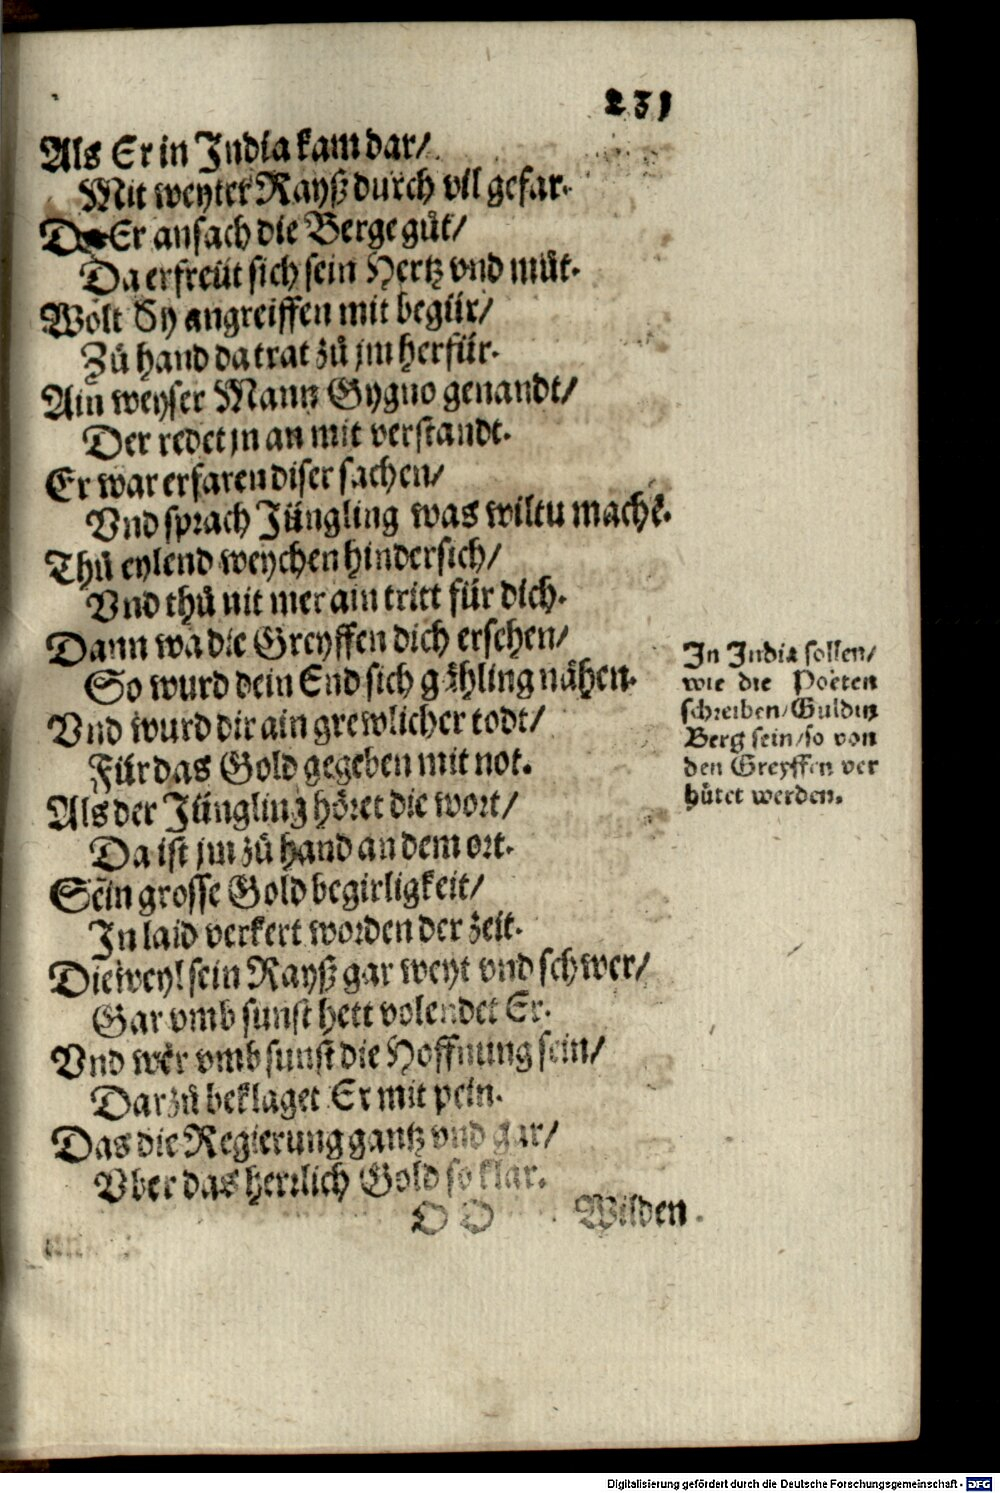 231
Als Er in India kam dar/
Mit weyter Rayß durch vil gefar.
Da Er ansach die Berge gůt/
Da erfreüt sich sein Hertz vnd můt.
Wolt Sy angreiffen mit begür/
Zů hand da trat zů jm herfür.
Ain weyser Mann Gyguo genandt/
Der redet jn an mit verstandt.
Er war erfaren diser sachen/
Vnd sprach Jüngling was wiltu machẽ.
Thů eylend weychen hindersich/
Vnd thů nit mer ain tritt für dich.
Dann wa die Greyffen dich ersehen/
So wurd dein End sich gåhling nåhen.
Vnd wurd dir ain grewlicher todt/
Für das Gold gegeben mit not.
Als der Jüngling höret die wort/
Da ist jm zů hand an dem ort.
Sein grosse Gold begirligkeit/
In laid verkert worden der zeit.
Dieweyl sein Rayß gar weyt vnd schwer/
Gar vmb sunst hett volendet Er.
Vnd wer vmb sunst die Hoffnung sein/
Darzů beklaget Er mit pein.
Das die Regierung gantz vnd gar/
Vber das herrlich Gold so klar.
In India sollen/
wie die Poëten
schreiben/Guldin
Berg sein/so von
den Greyffen ver
hütet werden.
O O Wilden
Digitalisierung gefördert durch die Deutsche Forschungsgemeinschaft - DFG